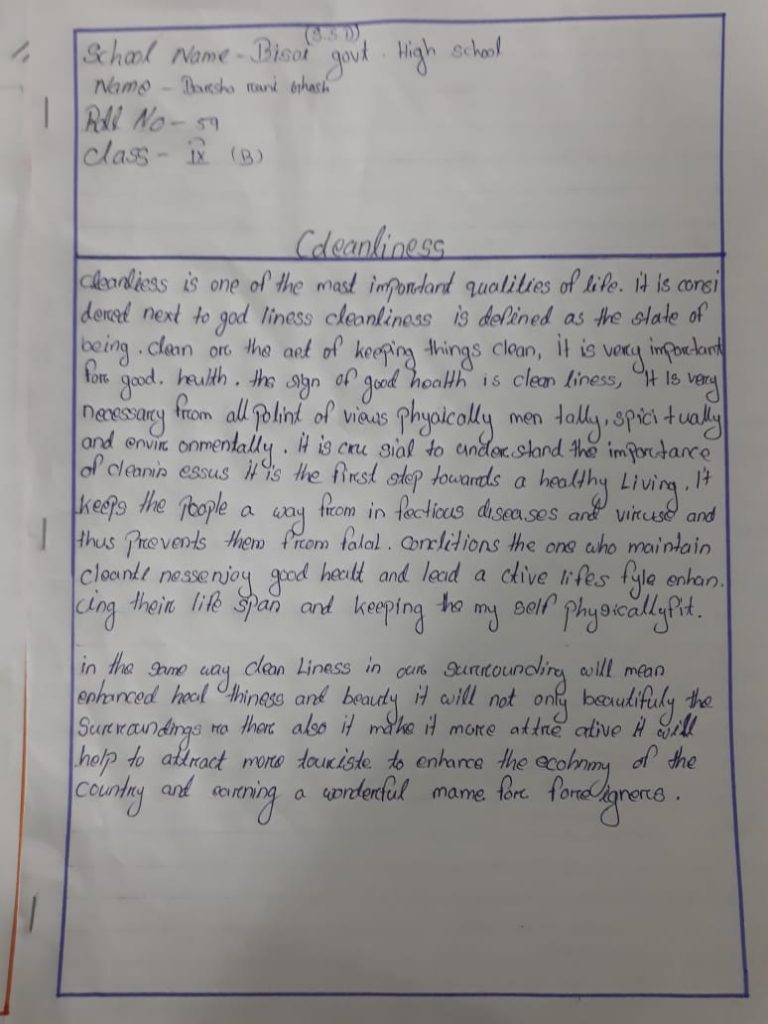 (S.S.D)
School Name - Bisoi govt. High school
Name - Barsha rani
Roll No - 59
Class - IX (B)
Cleanliness
cleanliess is one of the mast imporctant qualities of life. it is consi
dered next to god liness cleanliness is defined as the state of
being. clean orc the act of keeping things clean, it is verry imporctant
forc good. health. the sign of good health is clean liness, It Is very
necessary from all polint of views phyaically men tally, spicitually
and envirc onmentally. it is cru sial to underc.stand the imporctance
of cleanin essus it is the first step towards a healthy Living. It
keeps the people a way from in fectious diseases and viruse and
thus prevents them from falal. conditions the one who maintain
cleanll nessenjoy good healt and lead a ctive lifes fyle enhan.
cing theirc life span and keeping the my self physicallyfit.
in the same way clean Liness in ourc surrcounding will mean
enhanced heal thiness and beauty it will not only beautifuly the
Surrcoundings ra therc also it make it morce attrc active it will
help to attract morce touriste to enhance the ecohnmy of the
country and earcning a wonderful mame forc forceigners.